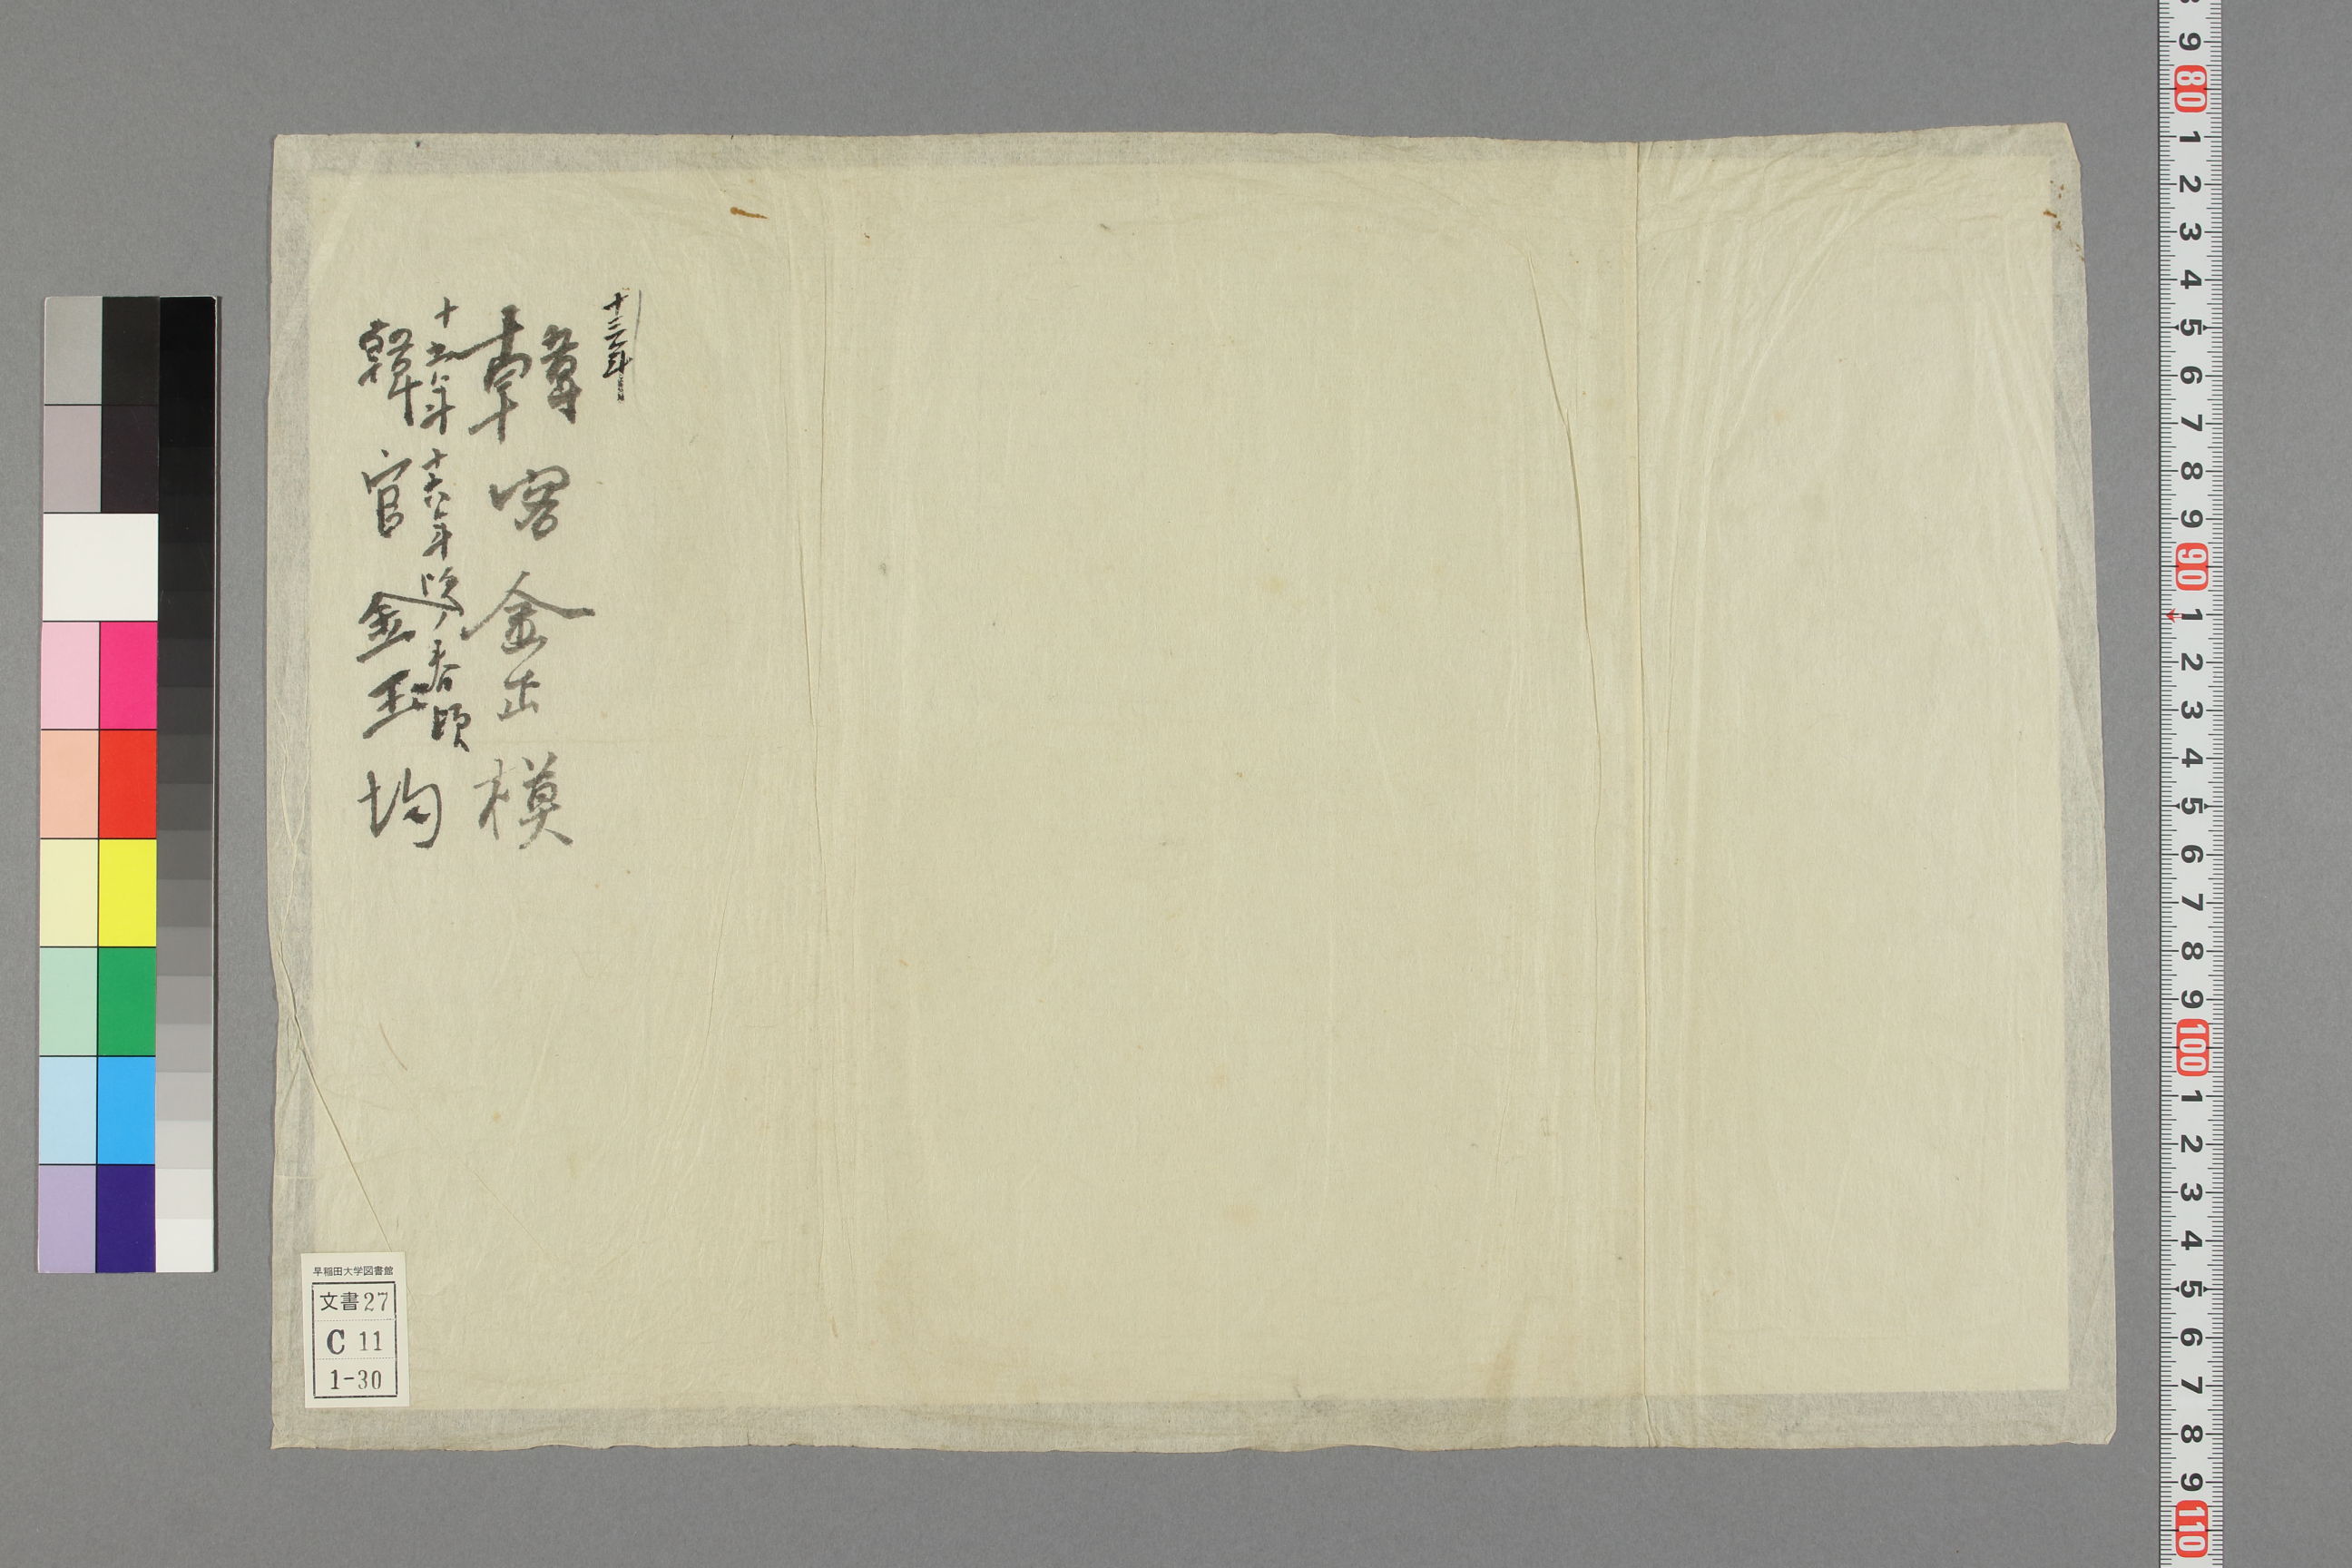 十三年
韓客金出模
十五年十六年頃ノ春頃
韓官金玉均
早稲田大学図書館
文書27
C 11
1-30
9 80 1 2 3 4 5 6 7 8 9 90 1 2 3 4 5 6 7 8 9 100 1 2 3 4 5 6 7 8 9 110